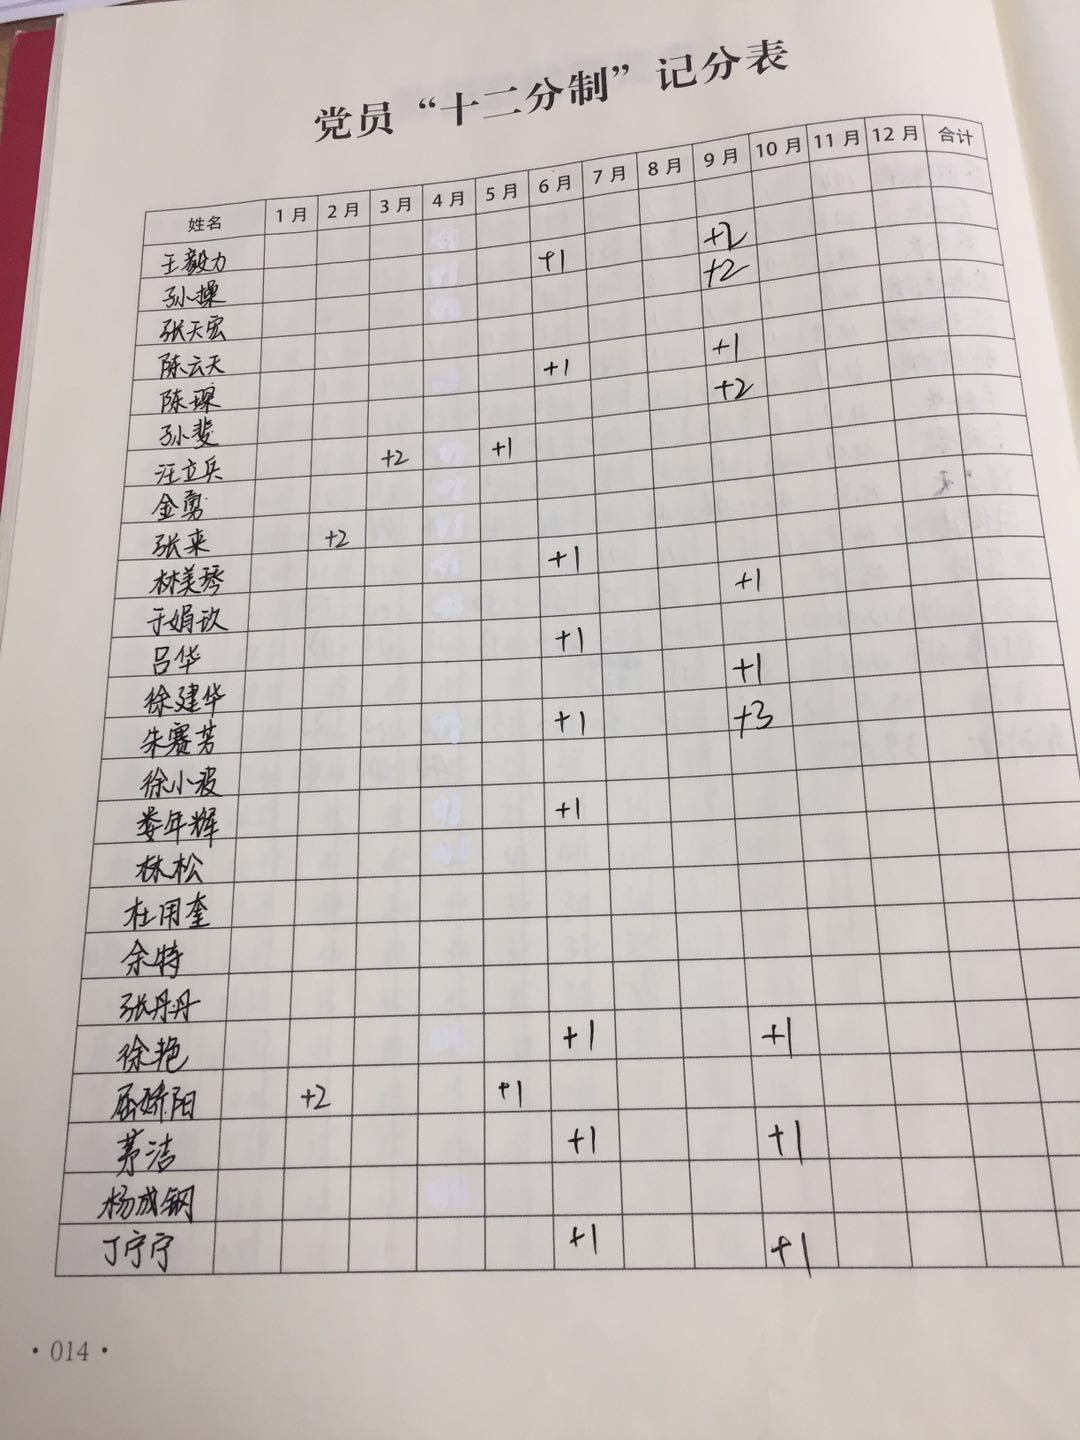 党员“十二分制”记分表
姓名 1月 2月 3月 4月 5月 6月 7月 8月 9月 10月 11月 12月 合计
王毅力
孙操 +1 +2
张天宏 +2
陈云天
陈琛 +1 +1
孙斐 +2
汪立兵 +2 +1
金勇
张来 +2
林美琴 +1
于娟玖 +1
吕华 +1
徐建华 +1
朱赛芳 +1 +3
徐小波
娄年辉 +1
林松
杜用奎
余特
张丹丹
徐艳 +1 +1
屈娇阳 +2 +1
茅洁 +1 +1
杨成钢
丁宁宁 +1 +1
·014·